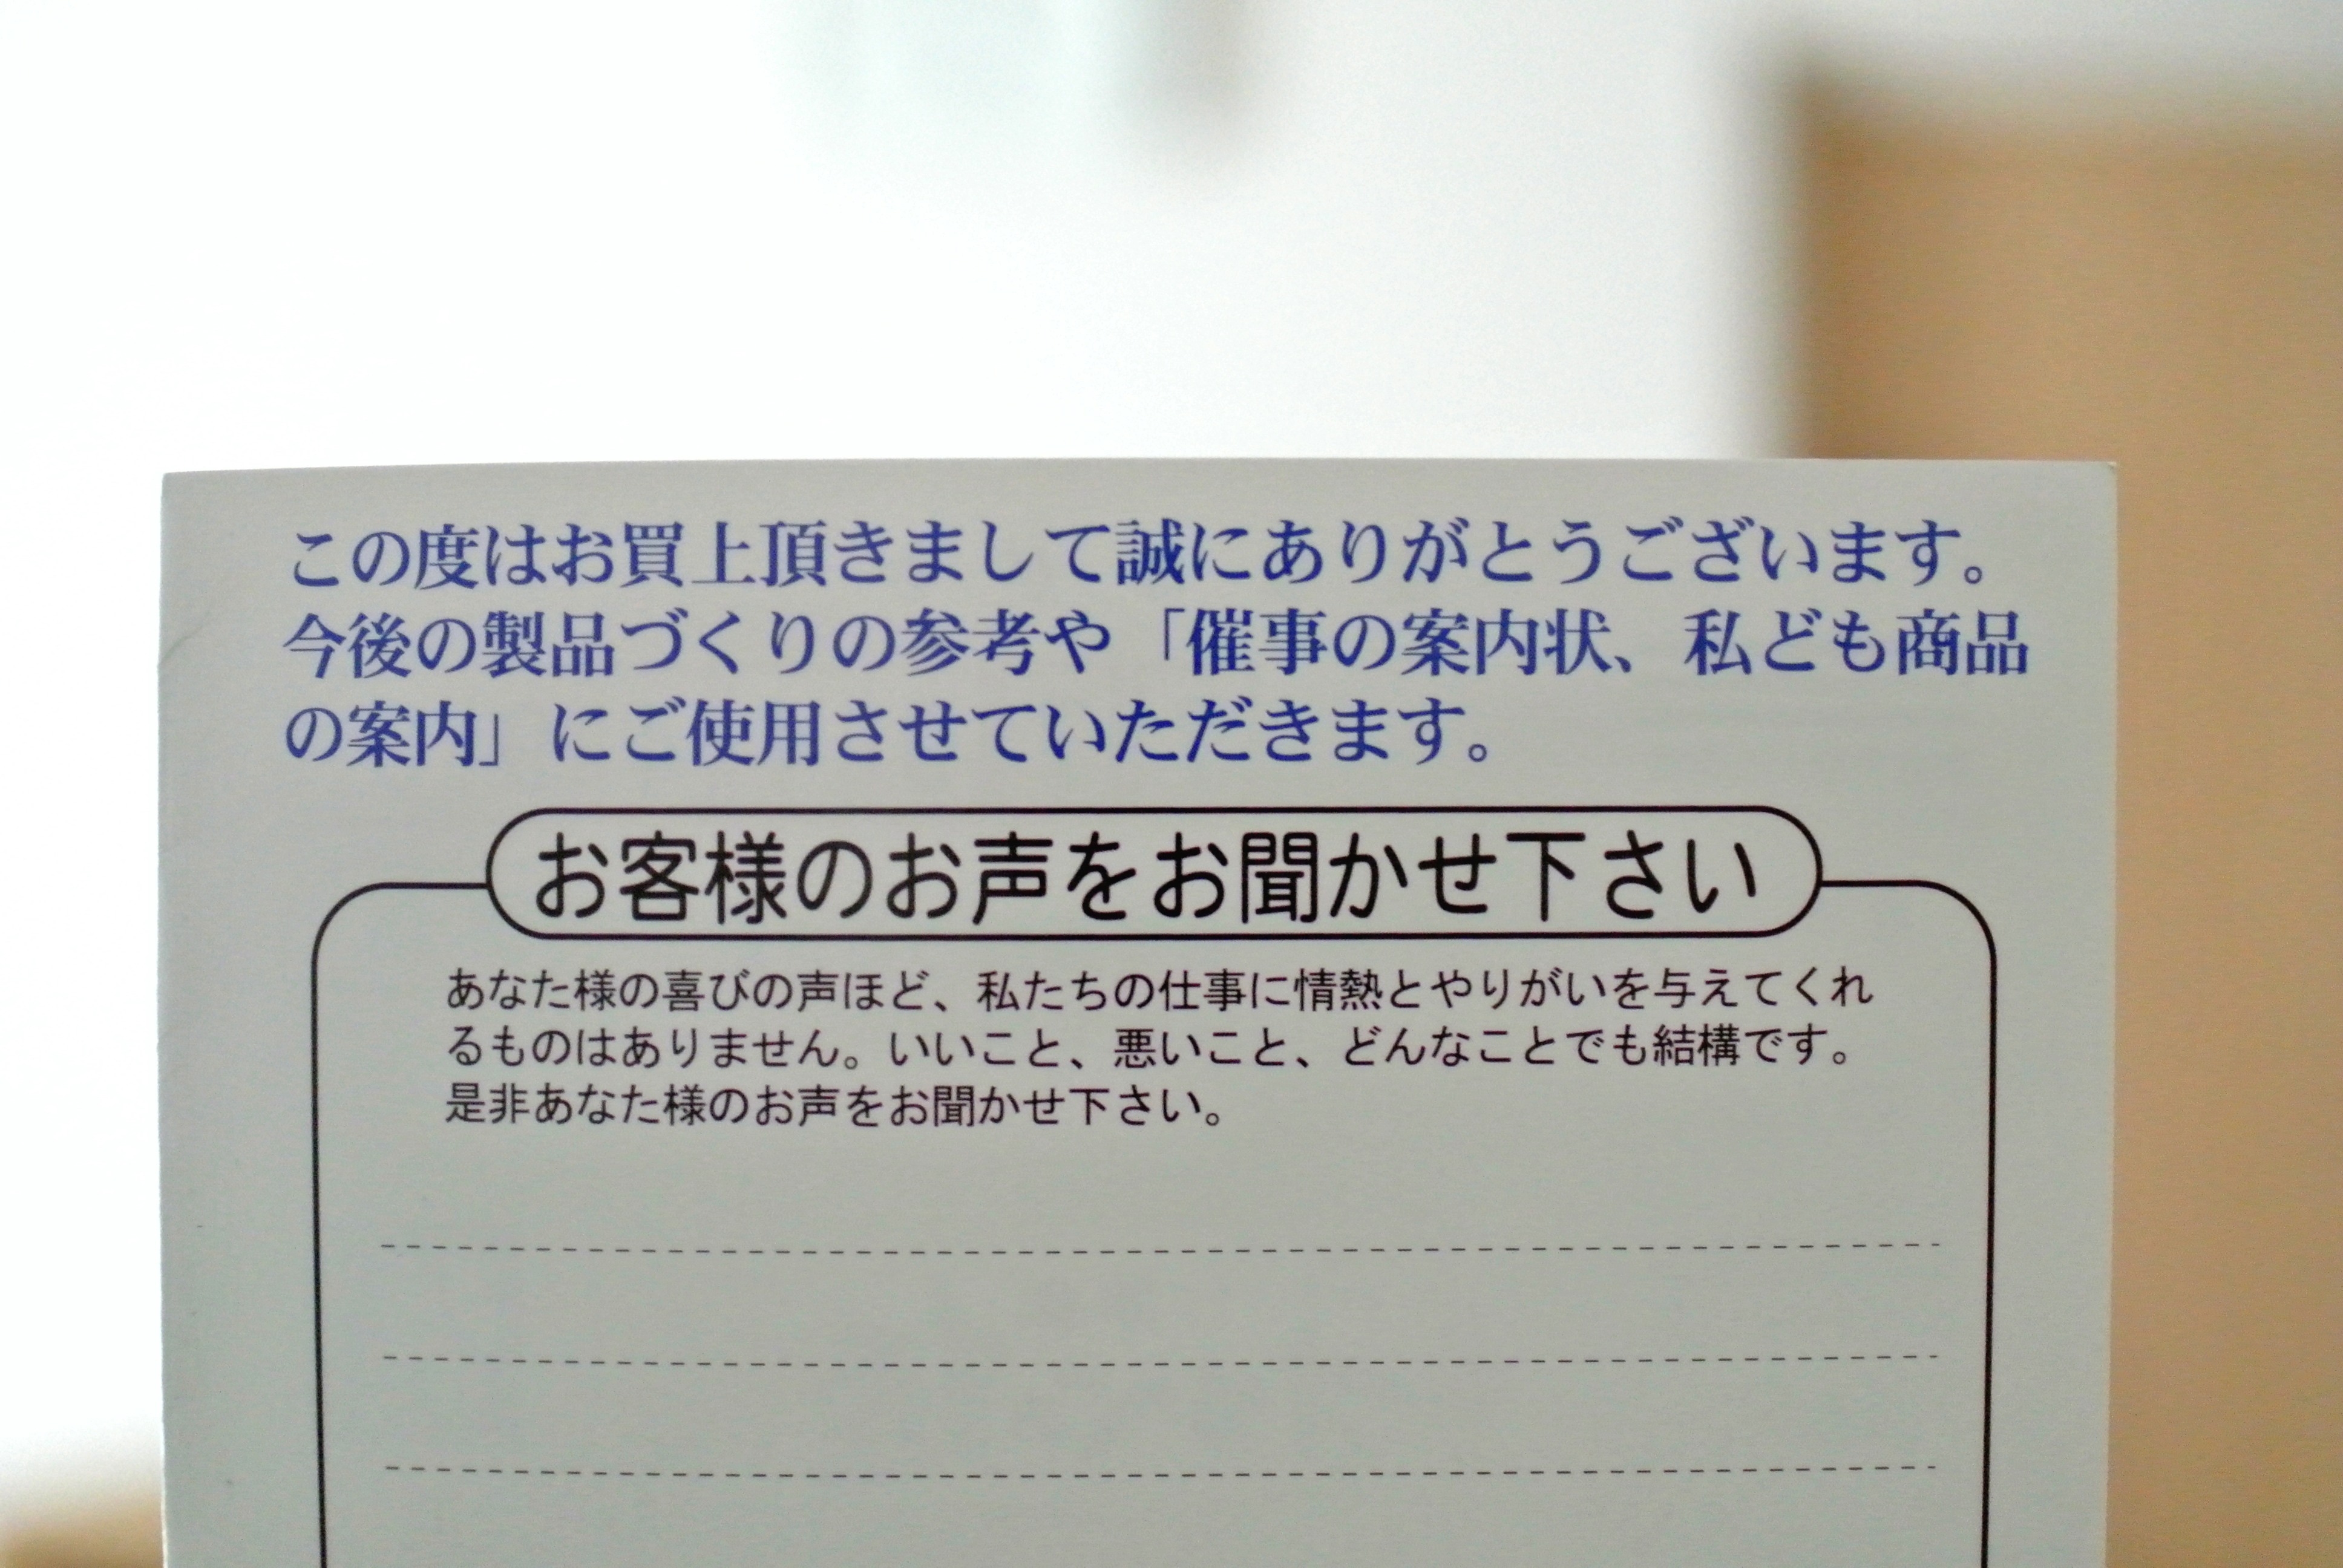 この度はお買上頂きまして誠にありがとうございます。
今後の製品づくりの参考や「催事の案内状、私ども商品
の案内」にご使用させていただきます。
お客様のお声をお聞かせ下さい
あなた様の喜びの声ほど、私たちの仕事に情熱とやりがいを与えてくれ
るものはありません。いいこと、悪いこと、どんなことでも結構です。
是非あなた様のお声をお聞かせ下さい。